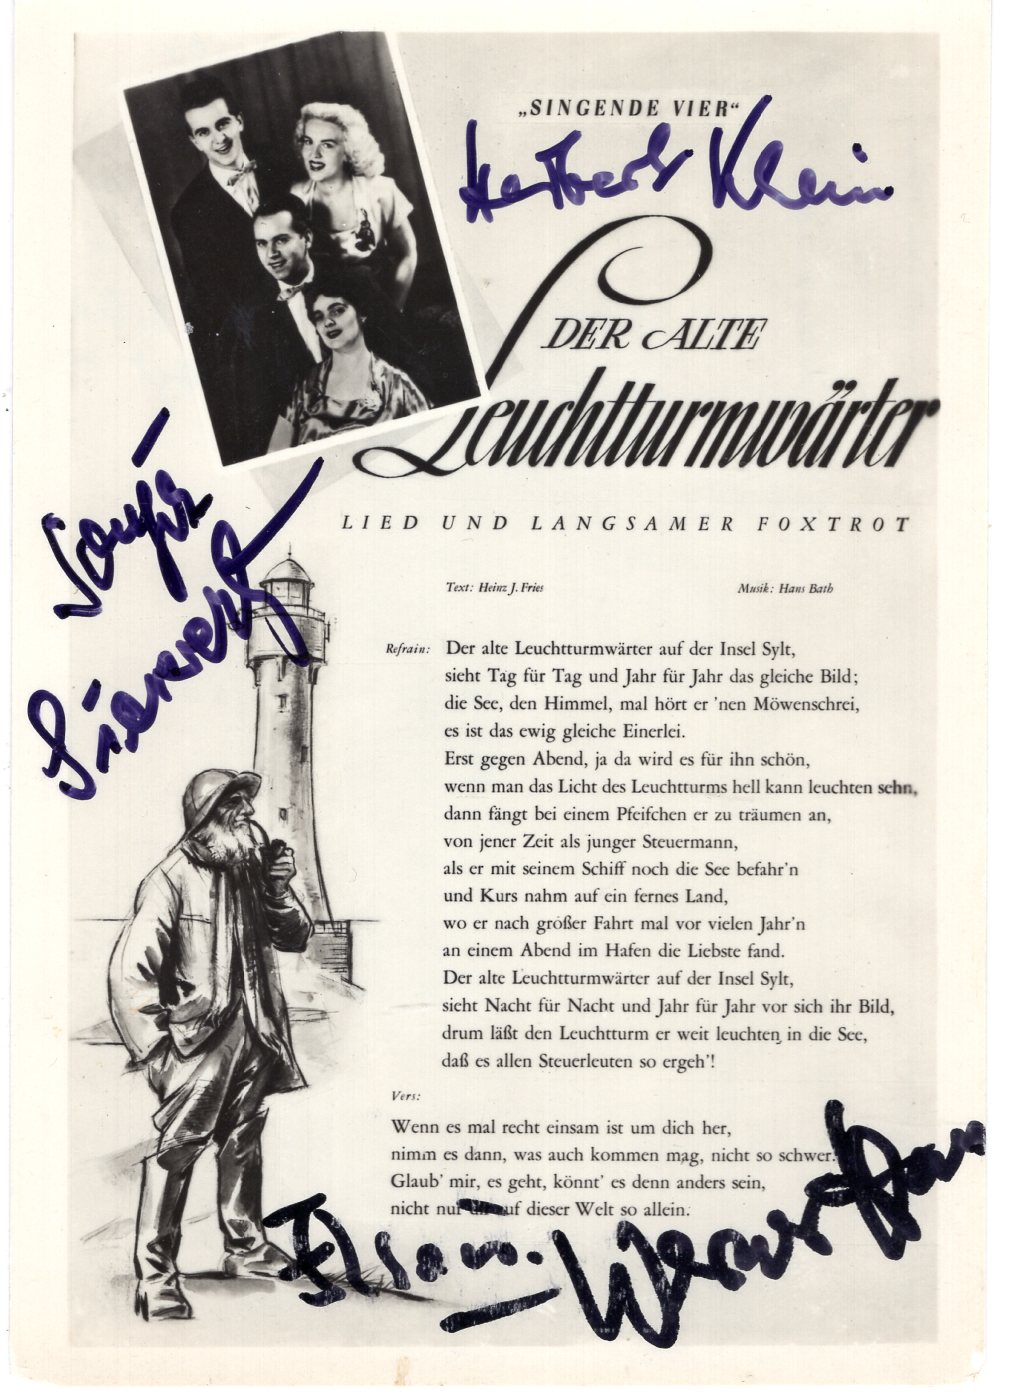 „SINGENDE VIER“
Herbert Klein
DER ALTE
Leuchtturmwärter
LIED UND LANGSAMER FOXTROT
Sonja
Siewert
Text: Heinz J. Fries
Musik: Hans Bath
Refrain:
Der alte Leuchtturmwärter auf der Insel Sylt,
sieht Tag für Tag und Jahr für Jahr das gleiche Bild;
die See, den Himmel, mal hört er 'nen Möwenschrei,
es ist das ewig gleiche Einerlei.
Erst gegen Abend, ja da wird es für ihn schön,
wenn man das Licht des Leuchtturms hell kann leuchten sehn,
dann fängt bei einem Pfeifchen er zu träumen an,
von jener Zeit als junger Steuermann,
als er mit seinem Schiff noch die See befahr'n
und Kurs nahm auf ein fernes Land,
wo er nach großer Fahrt mal vor vielen Jahr'n
an einem Abend im Hafen die Liebste fand.
Der alte Leuchtturmwärter auf der Insel Sylt,
sieht Nacht für Nacht und Jahr für Jahr vor sich ihr Bild,
drum läßt den Leuchtturm er weit leuchten in die See,
daß es allen Steuerleuten so ergeh'!
Vers:
Wenn es mal recht einsam ist um dich her,
nimm es dann, was auch kommen mag, nicht so schwer.
Glaub' mir, es geht, könnt' es denn anders sein,
nicht nur du auf dieser Welt so allein.
Werner